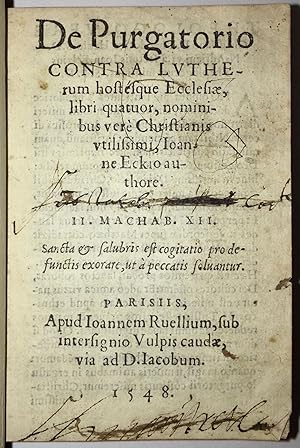 De Purgatorio
CONTRA LVTHE-
rum hostésque Ecclesiæ,
libri quatuor, nomini-
bus verè Christianis
vtilissimi, Ioan-
ne Eckio au-
thore.
II. MACHAB. XII.
Sancta & salubris est cogitatio pro de-
functis exorare, ut à peccatis soluantur.
PARISIIS,
Apud Ioannem Ruellium, sub
intersignio Vulpis caudæ,
via ad D. Iacobum.
1548.